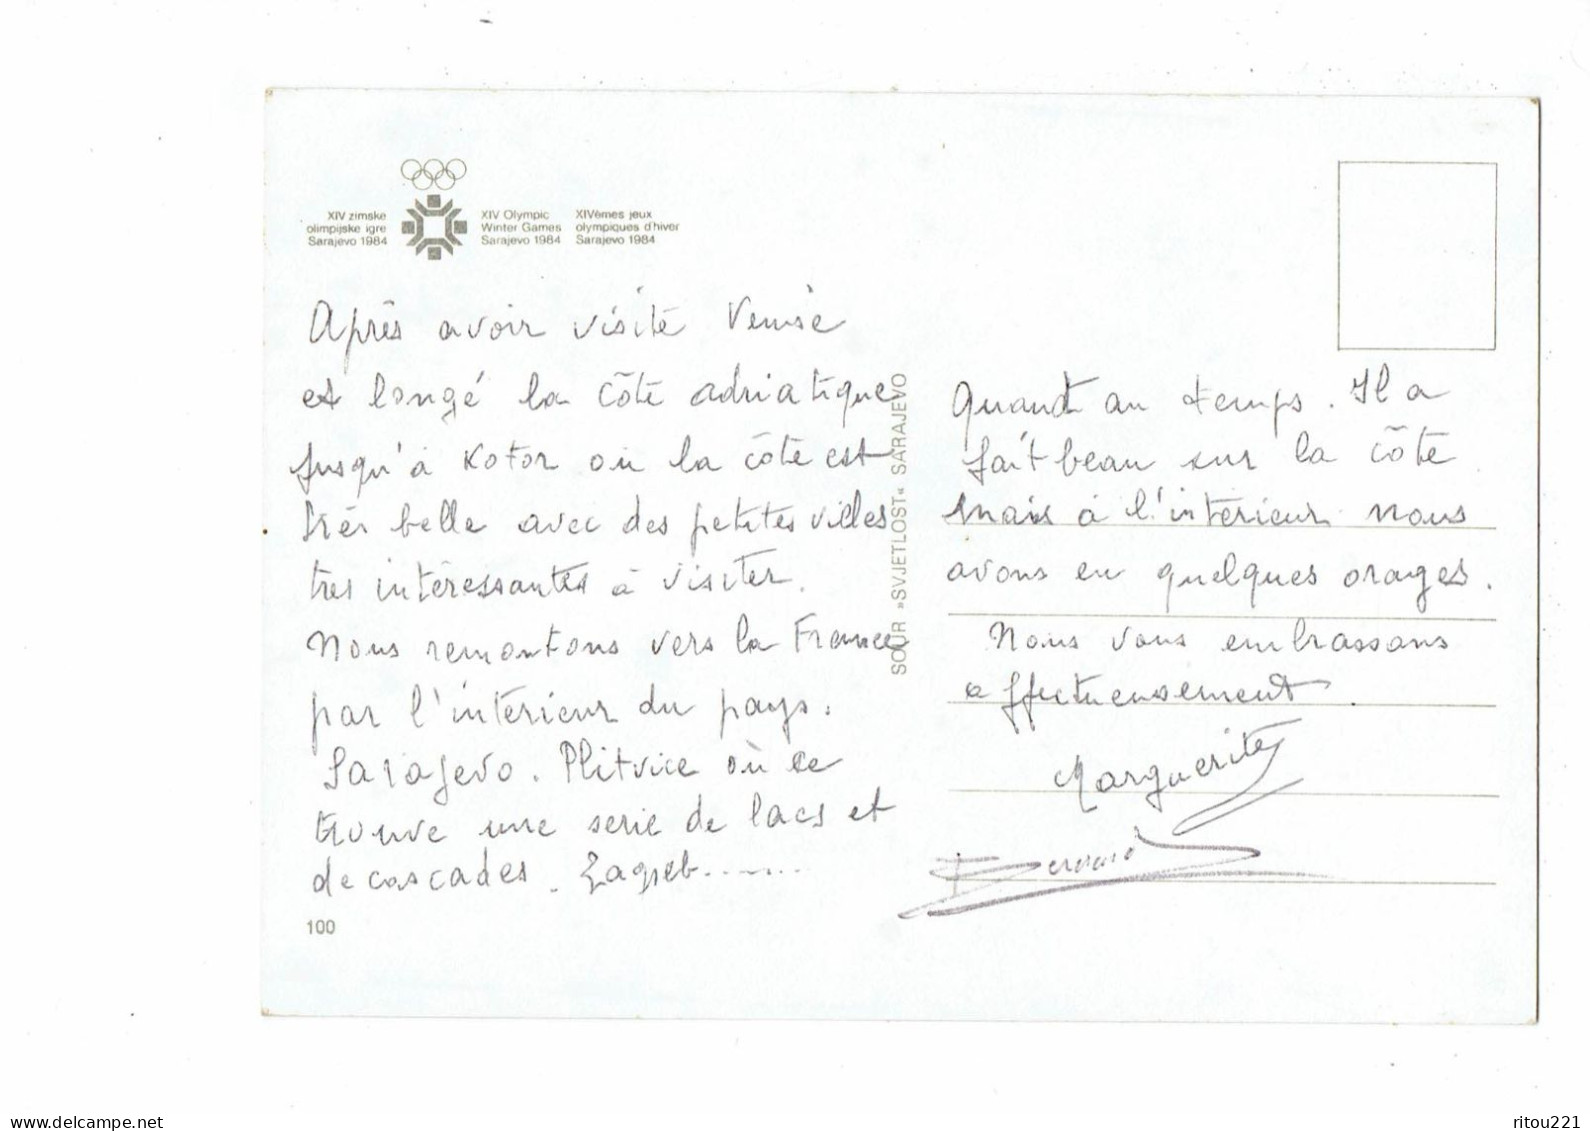 XIV zimske
olimpijske igre
Sarajevo 1984
XIV Olympic
Winter Games
Sarajevo 1984
XIVèmes jeux
olympiques d'hiver
Sarajevo 1984
Après avoir visité Venise
et longé la côte adriatique
jusqu'à Kotor où la côte est
très belle avec des petites villes
très intéressantes à visiter.
Nous remontons vers la France
par l'intérieur du pays.
Sarajevo. Plitvice où se
trouve une serie de lacs et
de cascades. Zagreb.......
100
SOUR »SVJETLOST« SARAJEVO
Quand au temps. Il a
fait beau sur la côte
mais à l'intérieur nous
avons eu quelques orages.
Nous vous embrassons
affectueusement.
Marguerite
Bernard
www.delcampe.net
ritou221